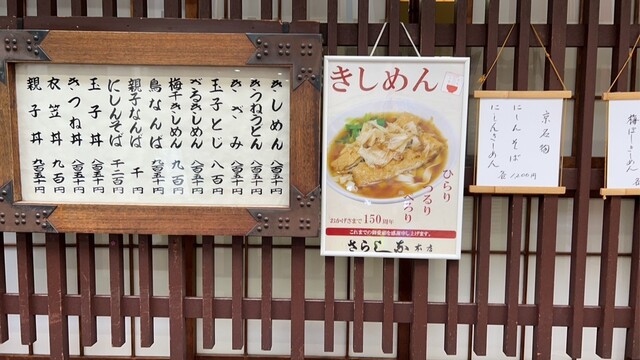 きしめん 八百五十円
きつねうどん 八百五十円
きざみ 八百五十円
玉子とじ 八百円
ざるきしめん
梅干きしめん 九百円
鳥なんば 八百五十円
親子なんば 千円
にしんそば 千二百円
玉子丼 八百五十円
きつね丼 八百五十円
衣笠丼 九百円
親子丼 九百五十円
きしめん
ひらり
つるり
ぺろり
おかげさまで150周年
これまでの御愛顧を感謝申し上げます。
さらしな本店
京名物
にしんそば
にしんきしめん
各1200円
梅ぼしきしめん